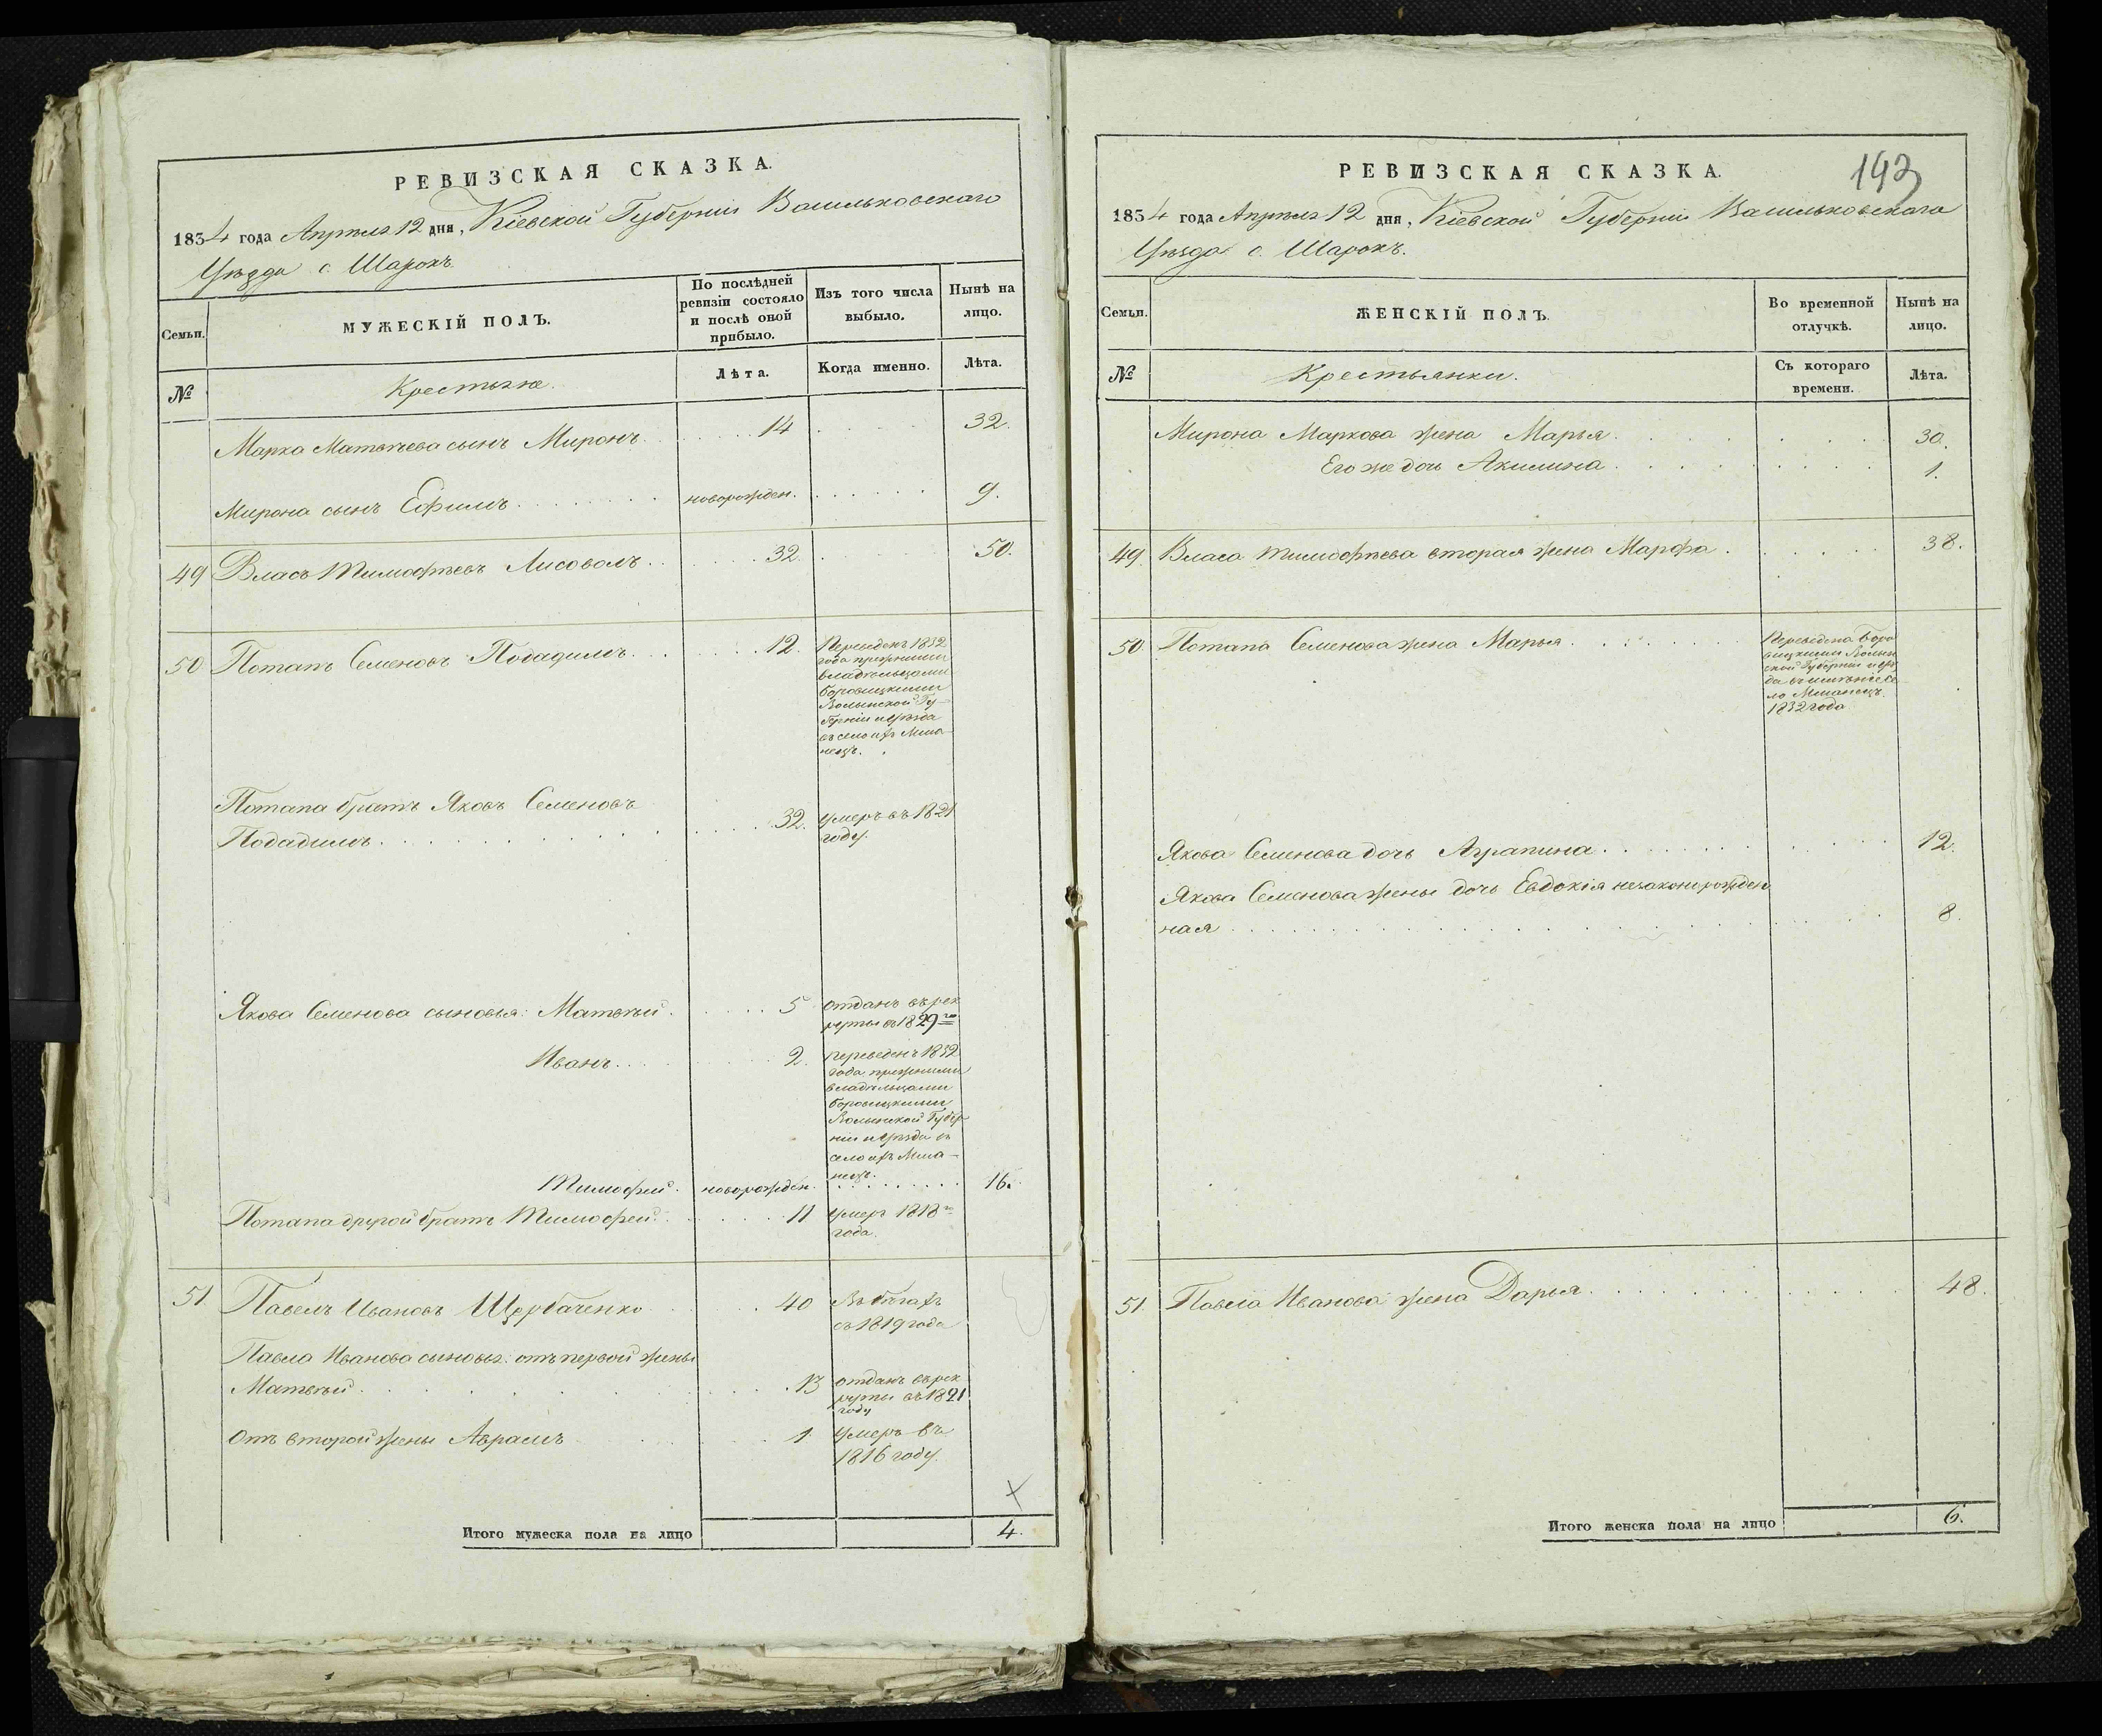 РЕВИЗСКАЯ СКАЗКА.
1834 года Апрѣля 12 дня, Кіевской Губерніи Васильковскаго
Уѣзда с. Шарокъ.
Семьи.
МУЖЕСКІЙ ПОЛЪ.
По послѣдней ревизіи состояло и послѣ оной прибыло.
Изъ того числа выбыло.
Нынѣ на лицо.
№
Крестьяне.
Лѣта.
Когда именно.
Лѣта.
Марка Матвѣева сынъ Миронъ. 14 32.
Мирона сынъ Ефимъ новорожден. 9.
49 Власъ Тимофѣевъ Лисоволъ 32. 50.
50 Потапъ Семеновъ Подадимъ 12.
Переведенъ 1832
года прежними
владѣльцами
Боровицкими
Волынской Гу-
берніи и уѣзда
въ село ихъ Мша-
нецъ.
Потапа братъ Яковъ Семеновъ
Подадимъ 32. умеръ въ 1821
году.
Якова Семенова сыновья: Матвѣй 5 отданъ въ рек
руты въ 1829го
Иванъ 2. переведенъ 1832
года прежними
владѣльцами
Боровицкими
Волынской Губер
ніи и уѣзда въ
село ихъ Мша-
нецъ.
Тимофей новорожден. 16.
Потапа другой братъ Тимофей 11 умеръ 1818го
года.
51 Павелъ Ивановъ Щербаченко 40 Въ бѣгахъ
съ 1819 года
Павла Иванова сыновья: отъ первой жены
Матвѣй 13 отданъ въ рек
руты въ 1821
году
Отъ второй жены Аврамъ 1. умеръ въ
1816 году.
Итого мужеска пола на лицо 4.
РЕВИЗСКАЯ СКАЗКА.
193
1834 года Апрѣля 12 дня, Кіевской Губерніи Васильковскаго
Уѣзда с. Шарокъ.
Семьи.
ЖЕНСКІЙ ПОЛЪ.
Во временной отлучкѣ.
Нынѣ на лицо.
№
Крестьянки.
Съ котораго времени.
Лѣта.
Мирона Маркова жена Марья 30.
Его же дочь Акилина 1.
49. Власа Тимофѣева вторая жена Марфа 38.
50. Потапа Семенова жена Марья
Переведена Боро
вицкими Волын
ской Губерніи и уѣз
да въ имѣніе се
ло Мшанецъ.
1832 года
Якова Семенова дочь Аграпина 12.
Якова Семенова жены дочь Евдокія незаконорожден
ная 8.
51. Павла Иванова жена Дарья 48.
Итого женска пола на лицо 6.